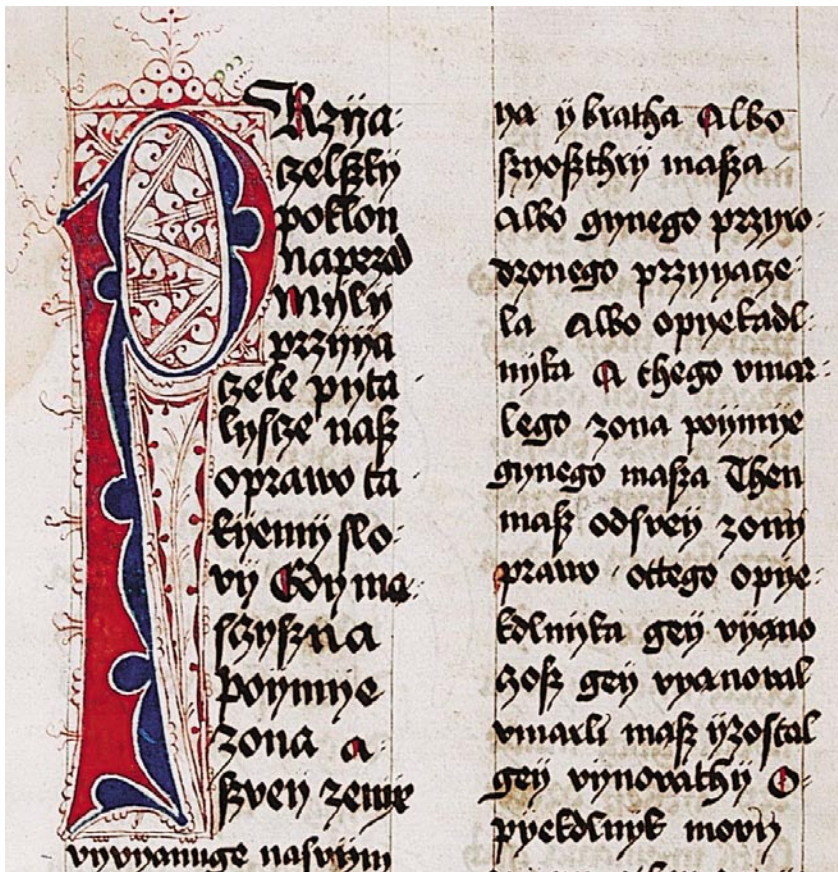 Przÿa-
czelskÿ
poklon
naprzod
mÿlÿ
przÿÿa
czele pÿta
lÿscze nasz
oprawo ta
kÿemÿ slo-
vÿ Gdÿ ma-
sczÿszna
poÿmÿe
zona a
szveÿ zenÿe
vÿvÿanuge nasvÿm
ÿa ÿ bratha Albo
szÿoszthrÿ masza
Albo gÿnego przÿro-
dzonego przÿÿacze-
la Albo opÿekadl-
nÿka A thego vmar-
lego zona poÿmÿe
gÿnego masza Then
masz odsveÿ zonÿ
prawo ottego opÿe-
kdlnÿka geÿ vÿano
czosz geÿ vyanowal
vmarli masz ÿzostal
geÿ vÿnovathÿ O-
pÿekdlnÿk movÿ